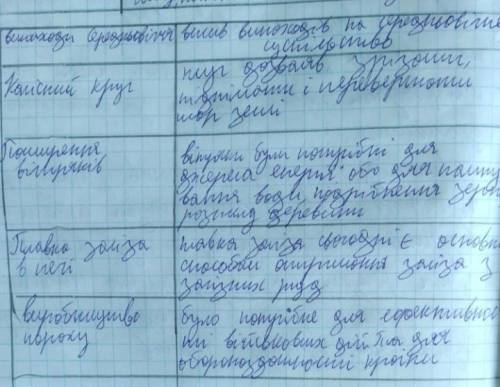 винаходи Середньовіччя
вплив винаходів на середньовічне
суспільство
Колісний
плуг дозволяв зрізати,
піднімати і перевертати
шар землі
Поширення
вітряків
вітряки були потрібні для
джерела енергії або для
води, подрібнення зерна
розпилу деревини
Плавка заліза
в печі
плавка заліза сьогодні є основним
способом отримання заліза з
залізних руд
виробництво
пороху
було потрібне для ефективнос
ті військових дій та для
обороноздатності країни